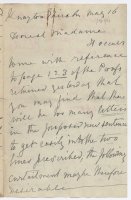 May 16
Dear Madame
It occurs
to me with reference
to page 123 of the Proofs
returned yesterday that
you may find that there
are too many letters
in the proposed new sentence
to get easily into the two
lines prescribed, the following
curtailment might therefore
desirable